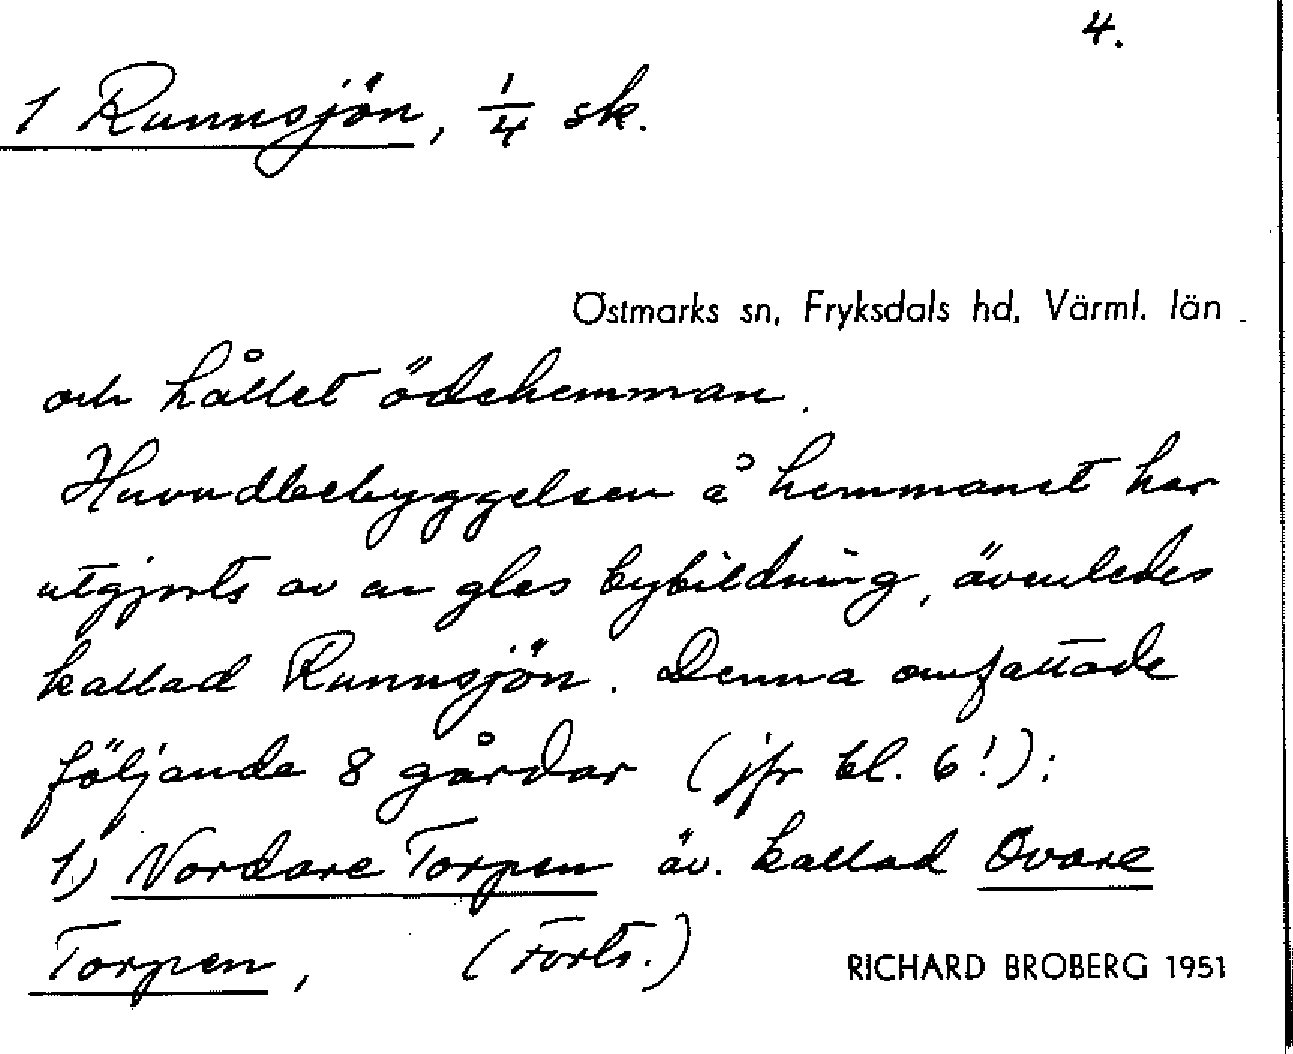 4.
1 Runnsjön, 1/4 sk.
Östmarks sn, Fryksdals hd, Värml. län
och hållet ödehemman.
Huvudbebyggelsen å hemmanet har
utgjorts av en gles bybildning, ävenledes
kallad Runnsjön. Denna omfattade
följande 8 gårdar (jfr bl. 6!):
1) Nordare Torpen äv. kallad Ovare
Torpen, (Forts.)
RICHARD BROBERG 1951